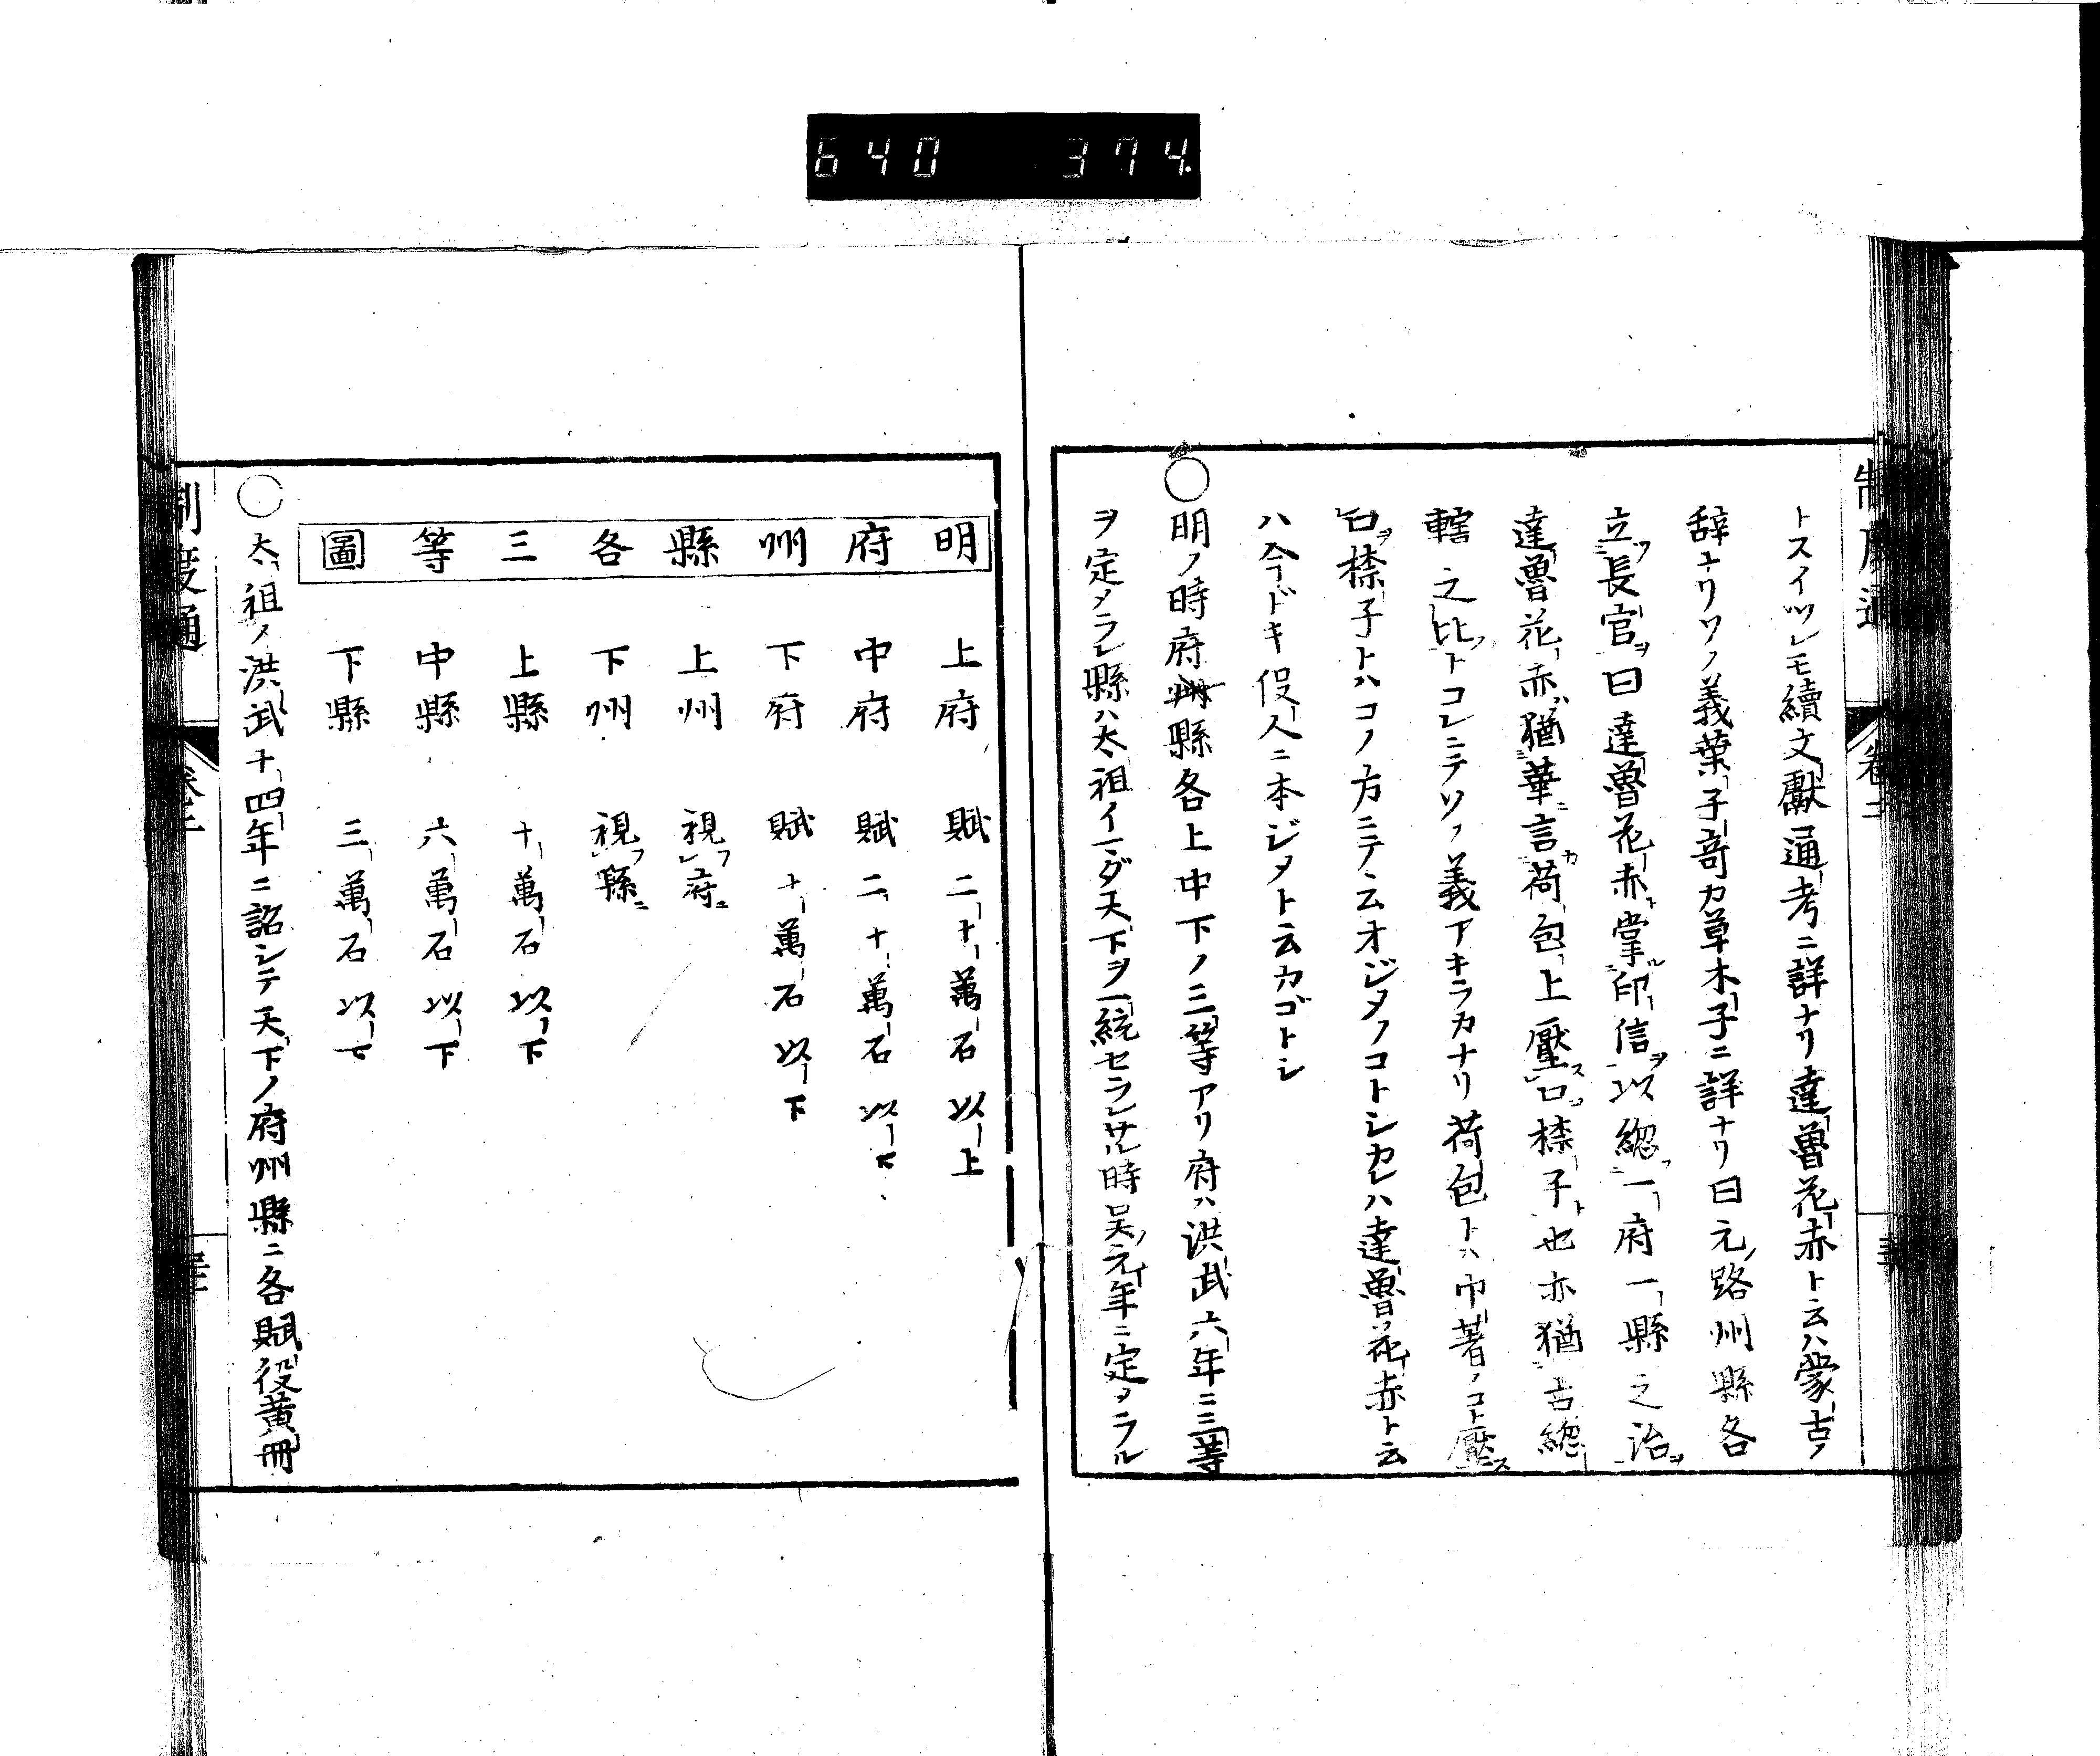 640 374.
トスイツレモ續文獻通考ニ詳ナリ達魯花赤ト云ハ蒙古ノ
辞ナリソノ義葉子竒カ草木子ニ詳ナリ曰元ノ路州縣各
立長官曰達魯花赤掌印信以總一府一縣之治
達魯花赤猶華言荷包上壓口捺子也亦猶古總
轄之比トコレニテソノ義アキラカナリ荷包トハ巾著ノコト壓
口捺子トハコノ方ニテ云オジタノコトシカレハ達魯花赤ト云
ハ今ドキ役人ニ本ジタト云カゴトシ
○明ノ時府州縣各上中下ノ三等アリ府ハ洪武六年ニ三等
ヲ定メラレ縣ハ太祖イマダ天下ヲ一統セラレサル時呉ノ元年ニ定メラル
明府州縣各三等圖
上府 賦二十萬石以上
中府 賦二十萬石以下
下府 賦十萬石以下
上州 視府
下州 視縣
上縣 十萬石以下
中縣 六萬石以下
下縣 三萬石以下
○太祖ノ洪武十四年ニ詔シテ天下ノ府州縣ニ各賦役黄冊
制度通